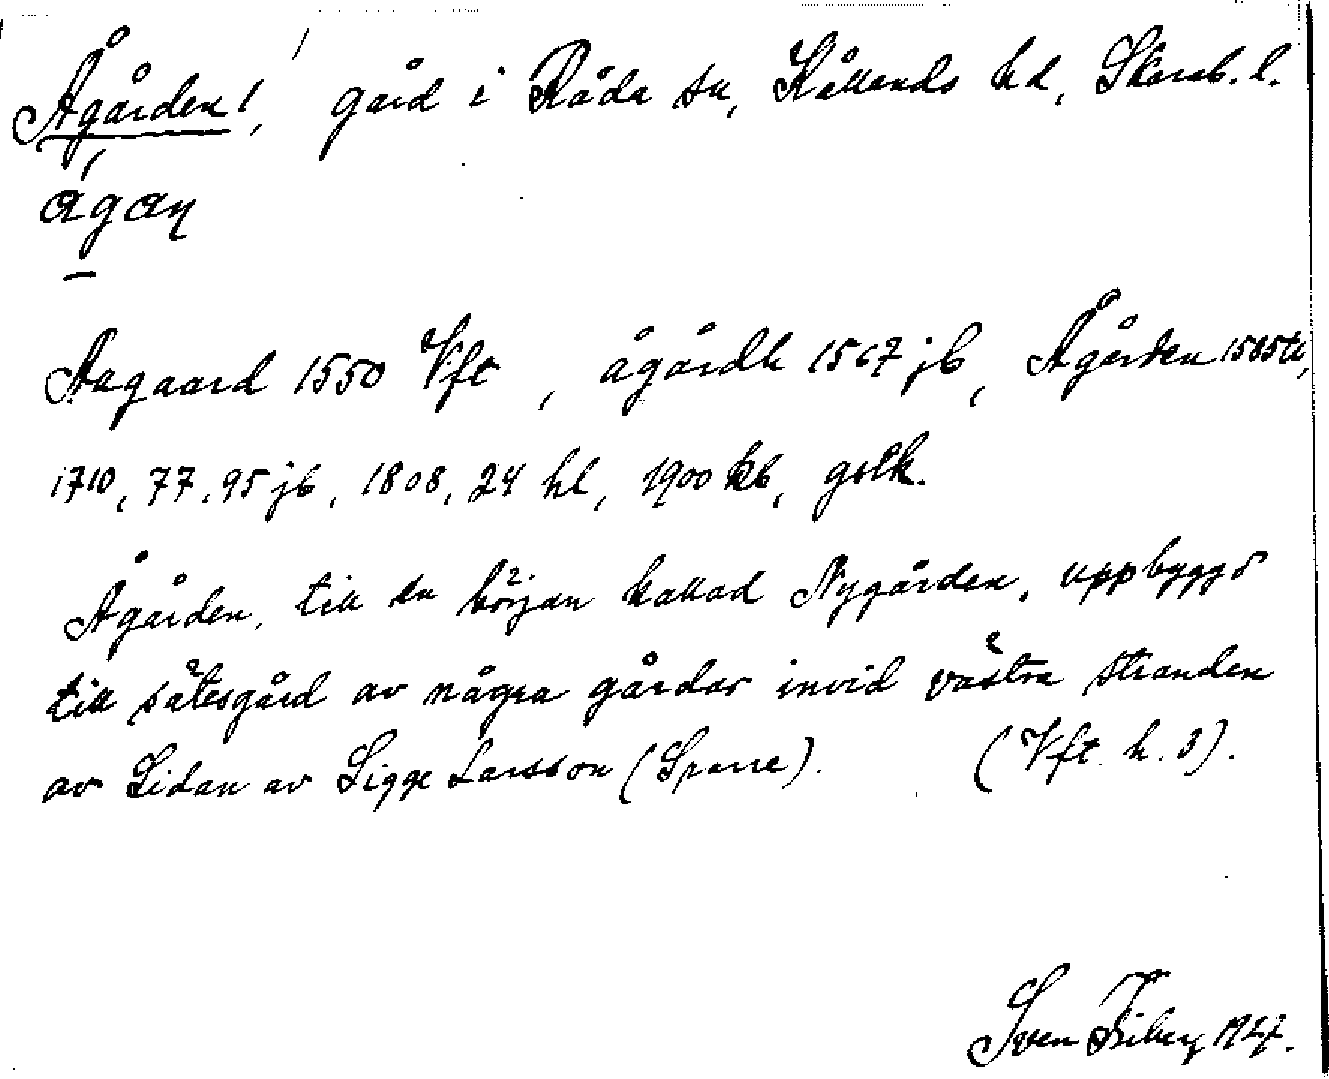 Ågården!, gård i Råda sn, Kållands hd, Skarab. l.
ágaṇ
Aagaard 1550 Vft, ågårdh 1567 jb, Ågården 1585 tl,
1710, 77, 95 jb, 1808, 24 hl, 1900 kb, gslk.
Ågården, till en början kallad Nygården, uppbyggs
till sätesgård av några gårdar invid västra stranden
av Lidan av Sigge Larsson (Sparre). (Vft h. 3).
Sven Friberg 1927.